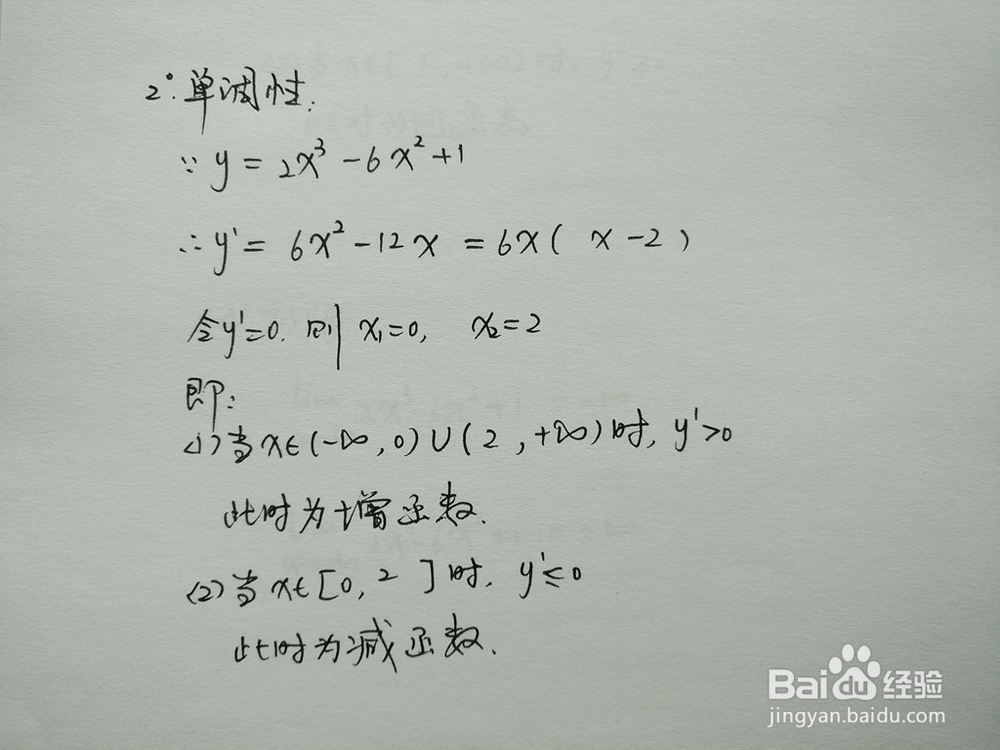 2°. 单调性.
∵ y = 2x³ - 6x² + 1
∴ y' = 6x² - 12x = 6x( x - 2 )
令y'=0. 则 x₁=0, x₂=2
即:
(1) 当 x∈(-∞, 0)∪(2, +∞)时, y'>0
此时为增函数.
(2) 当 x∈[0, 2 ]时, y'≤0
此时为减函数.
Baidu经验
jingyan.baidu.com